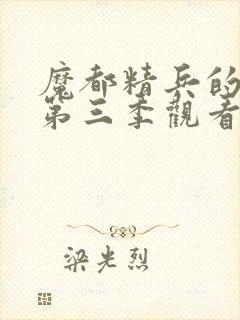 魔都精兵的
第三季觀看
梁光烈